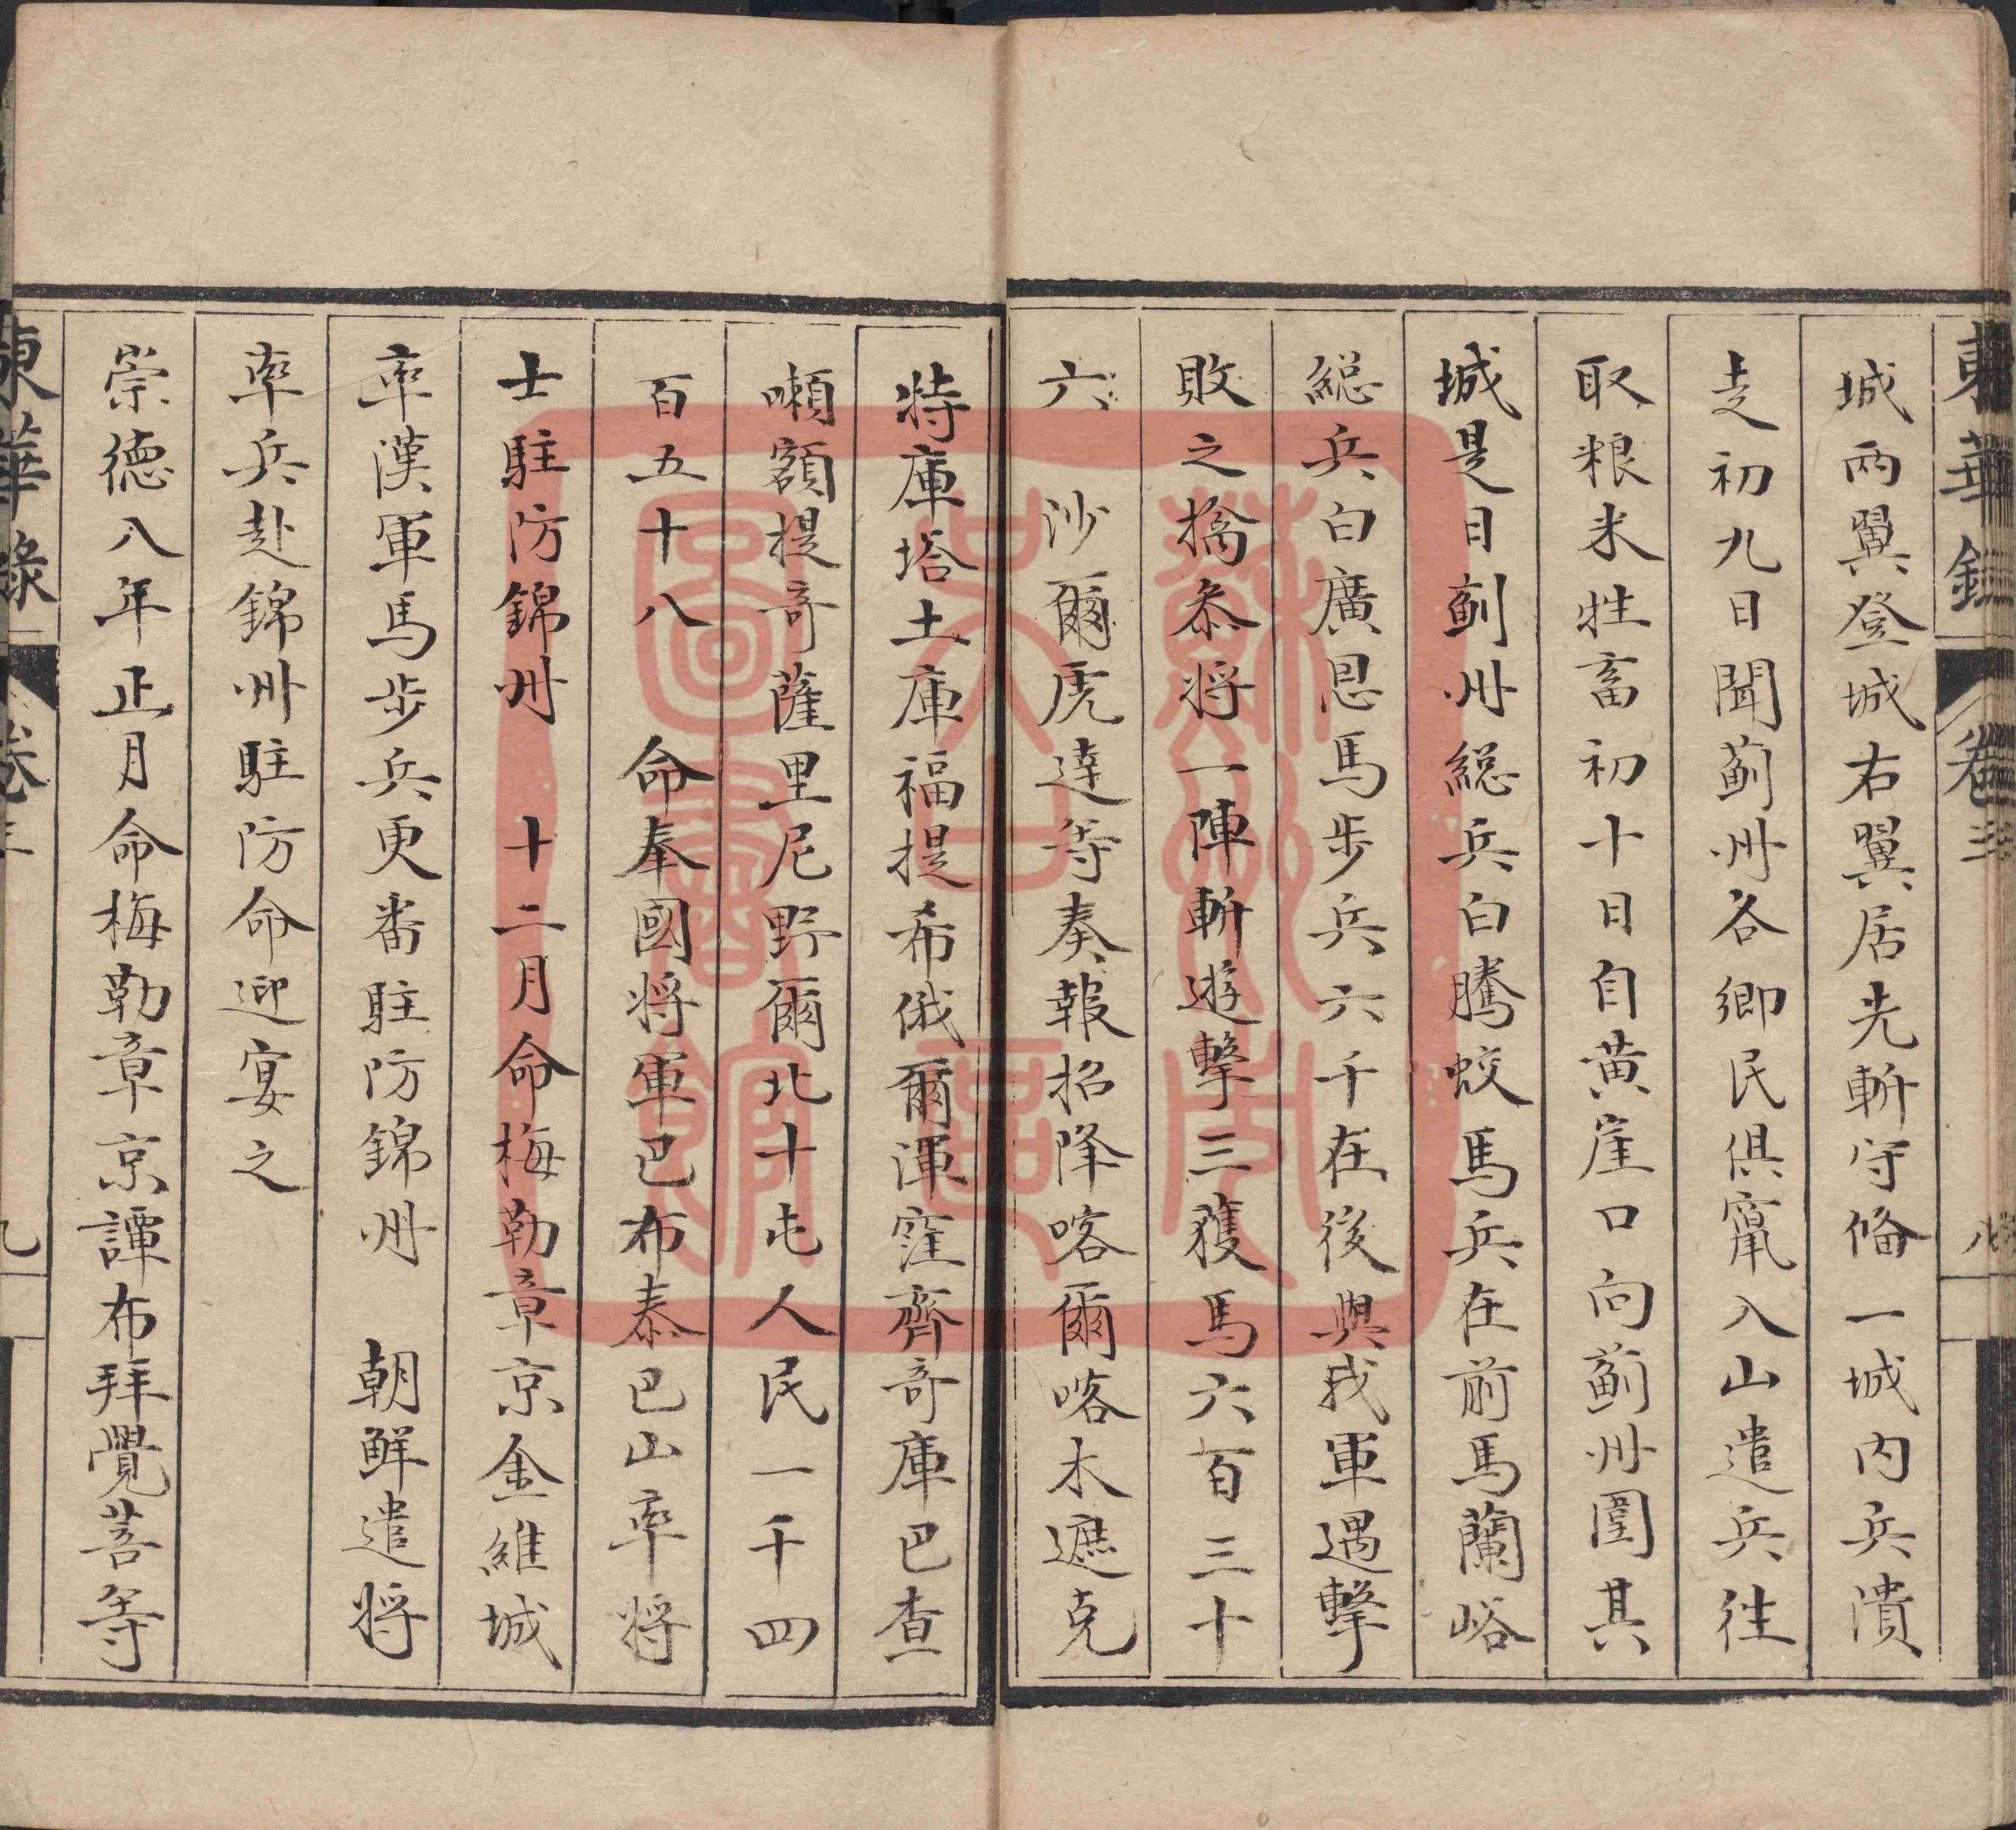 東華錄 卷三 八
城兩翼登城右翼居先斬守俻一城内兵潰
走初九日聞薊州各鄉民俱竄入山遣兵往
取粮米牲畜初十日自黄崖口向薊州圍其
城是日薊州総兵白騰蛟馬兵在前馬蘭峪
総兵白廣恩馬步兵六千在後與我軍遇擊
敗之擒叅将一陣斬遊擊三獲馬六百三十
六 沙爾虎達等奏報招降喀爾喀木遮克
特庫塔土庫福提希俄爾渾窪齊奇庫巴查
嘣額提奇薩里尼野爾北十屯人民一千四
百五十八 命奉國将軍巴布泰巴山率将
士駐防錦州 十二月命梅勒章京金維城
率漢軍馬步兵更畨駐防錦州 朝鮮遣将
率兵赴錦州駐防命迎宴之
崇德八年正月命梅勒章京譚布拜覺菩等
東華錄 卷三 九
蘇州大學區圖書館